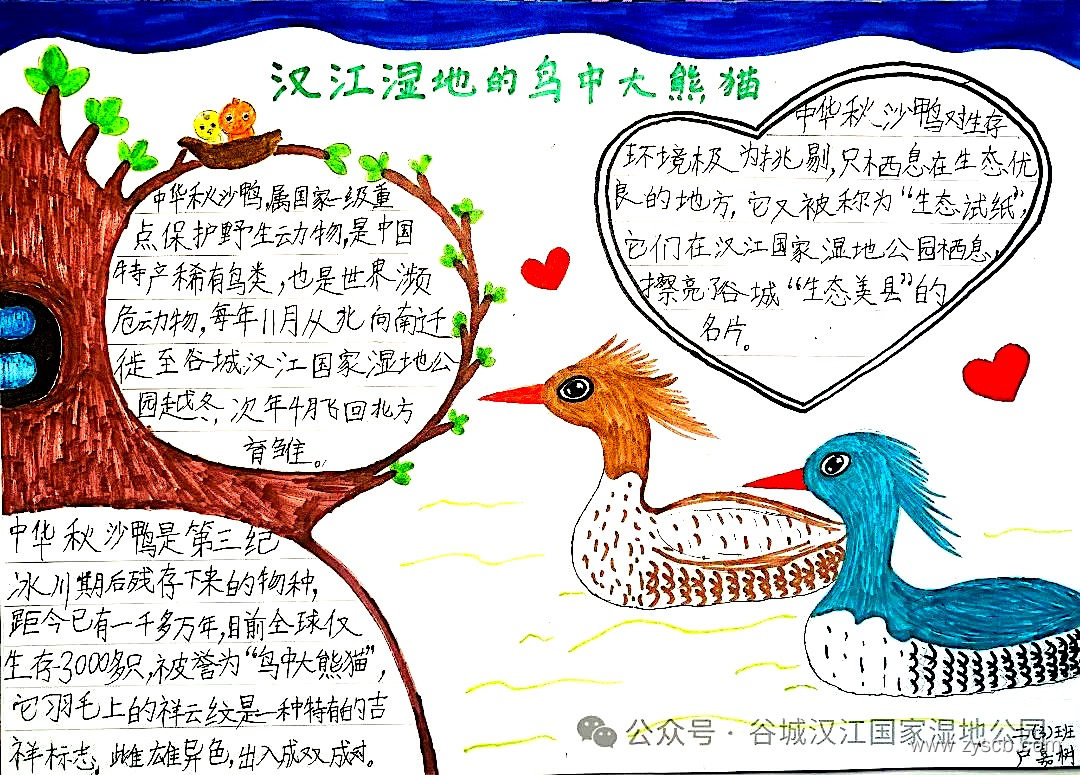 汉江湿地的鸟中大熊猫
中华秋沙鸭,属国家一级重
点保护野生动物,是中国
特产稀有鸟类,也是世界濒
危动物,每年11月从北向南迁
徙至谷城汉江国家湿地公
园越冬,次年4月飞回北方
育雏。
中华秋沙鸭对生存
环境极为挑剔,只栖息在生态优
良的地方,它又被称为“生态试纸”,
它们在汉江国家湿地公园栖息,
擦亮了谷城“生态美县”的
名片。
中华秋沙鸭是第三纪
冰川期后残存下来的物种,
距今已有一千多万年,目前全球仅
生存3000多只,被誉为“鸟中大熊猫”,
它羽毛上的祥云纹是一种特有的吉
祥标志。雌雄异色,出入成双成对。
公众号·谷城汉江国家湿地公园
www.zyscb.com
(3)班
卢嘉树